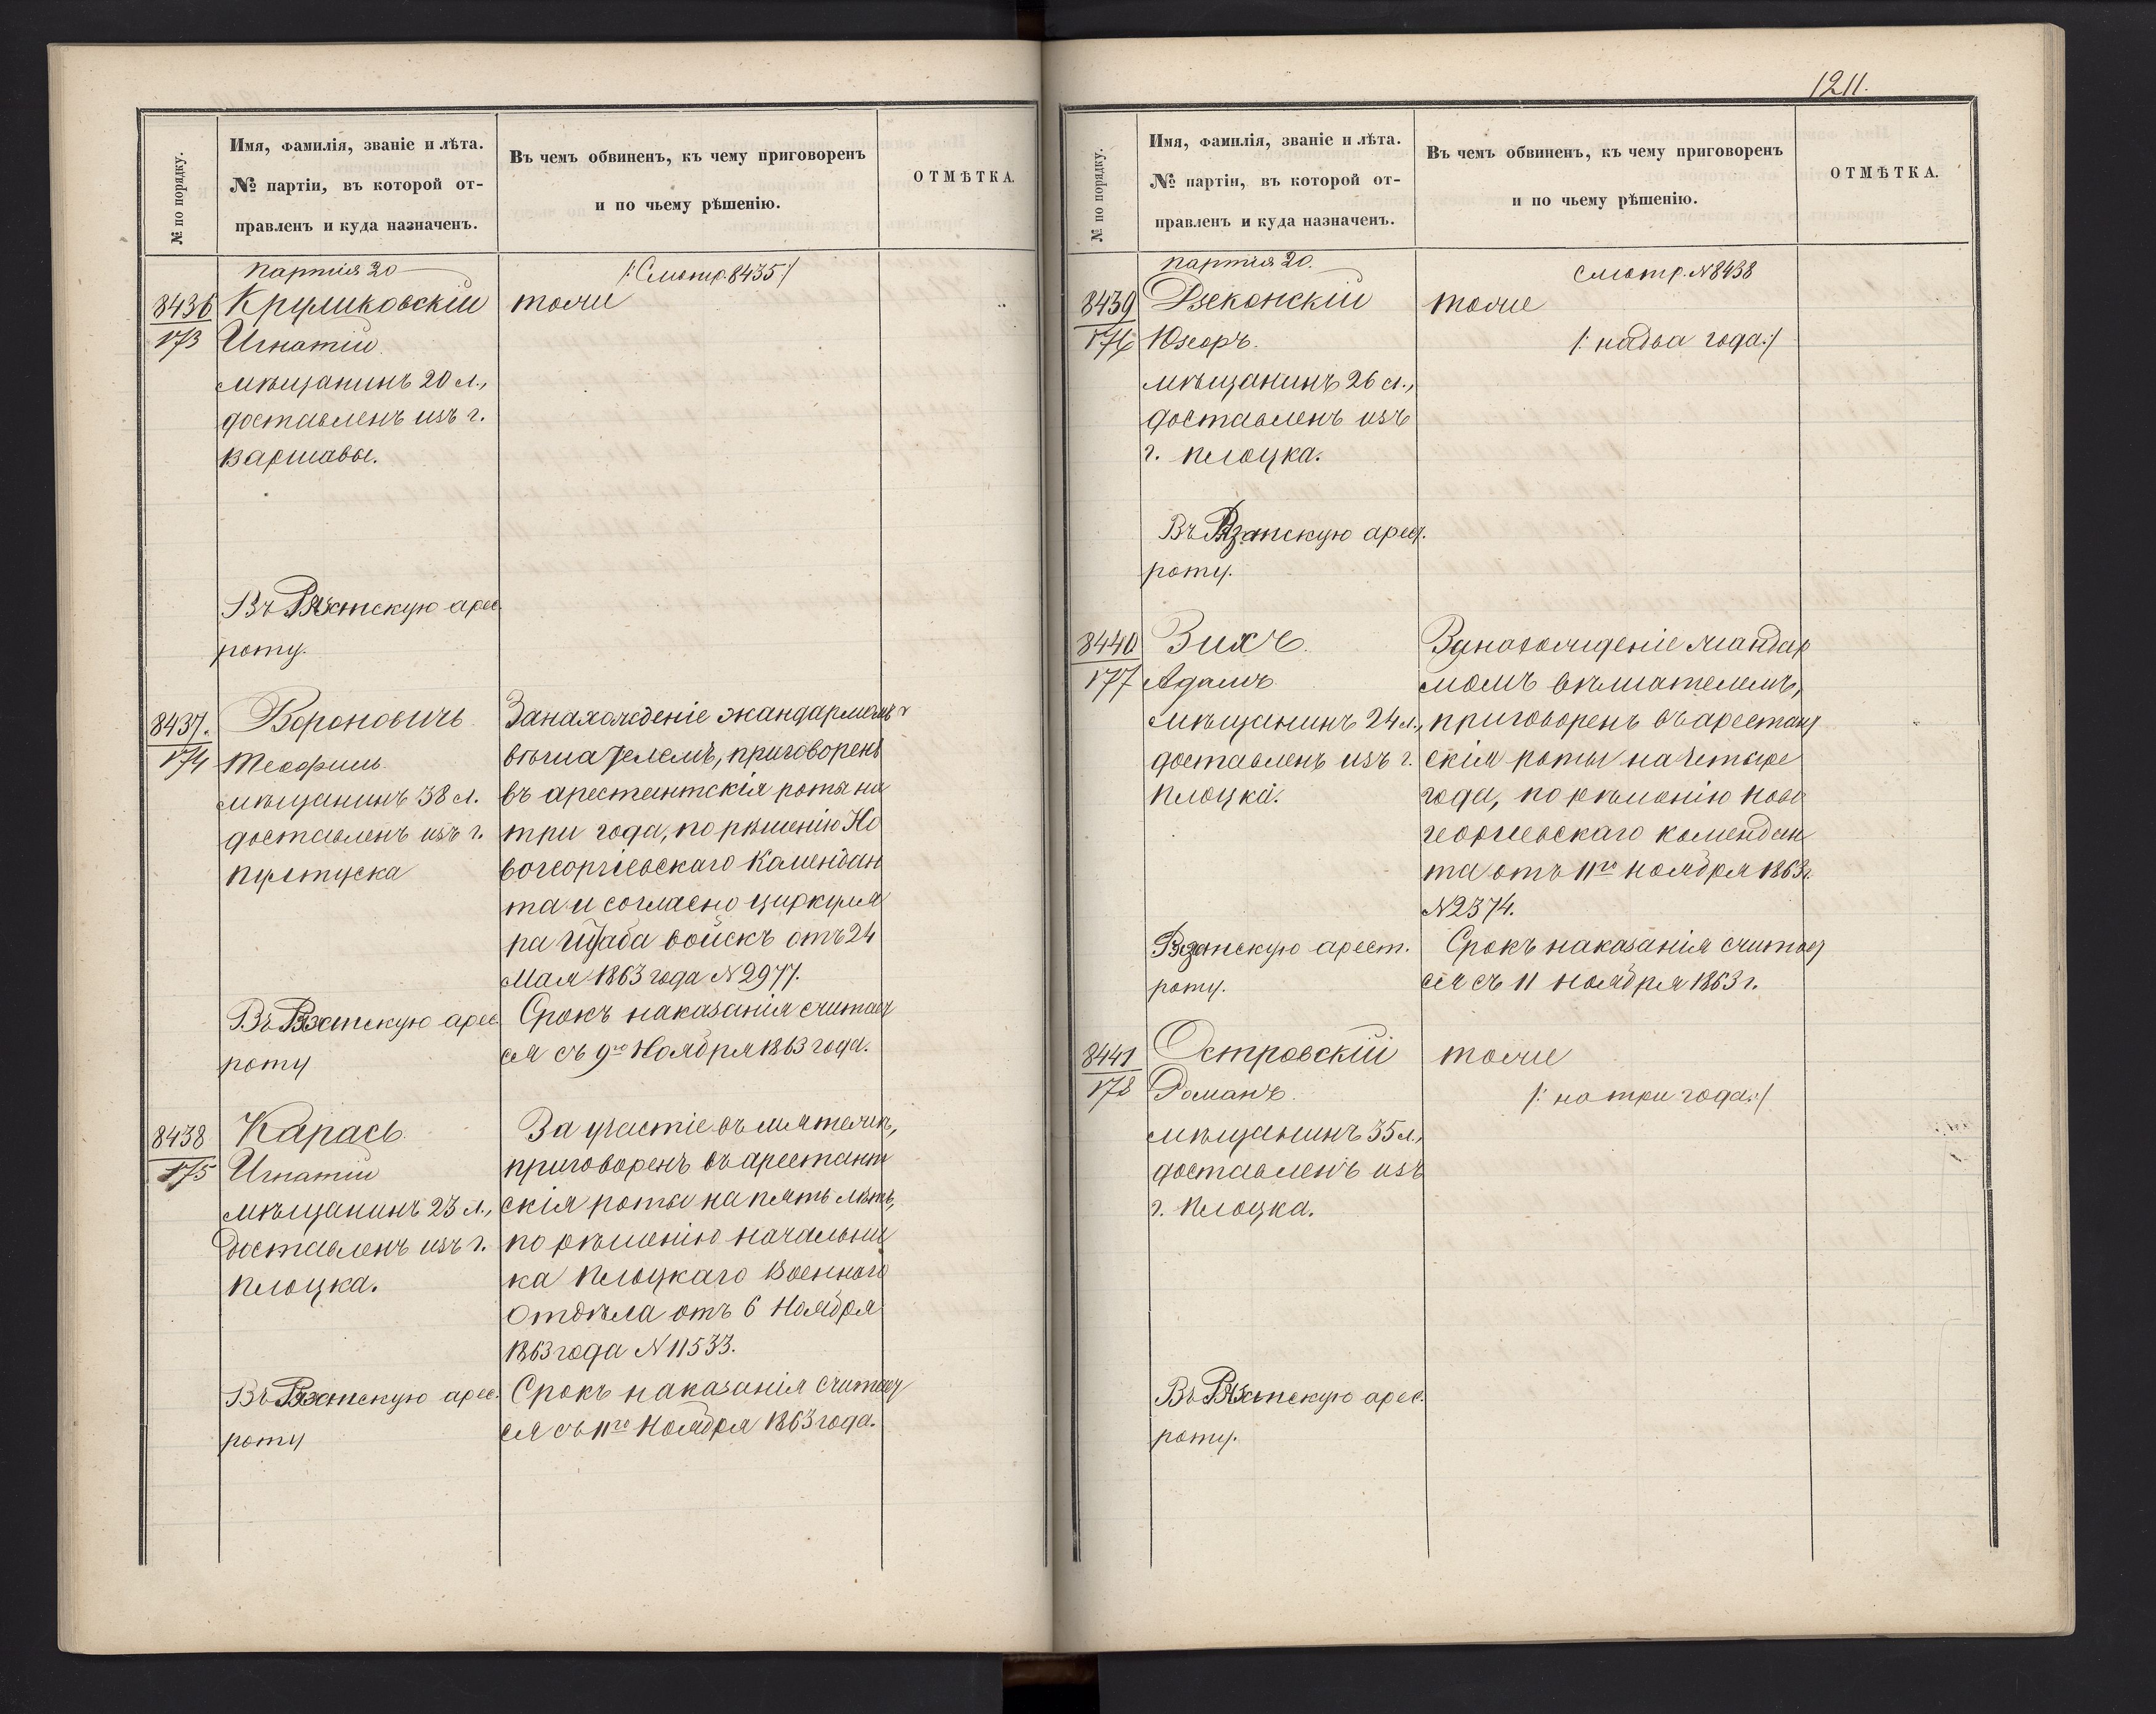 1211.
№ по порядку.
Имя, фамилія, званіе и лѣта.
№ партіи, въ которой от-
правленъ и куда назначенъ.
Въ чемъ обвиненъ, къ чему приговоренъ
и по чьему рѣшенію.
ОТМѢТКА.
Партія 20
/:Смотр. 8435/
8436
173
Круликовскій
Игнатій
мѣщанинъ 20 л.,
доставленъ изъ г.
Варшавы.
Въ Рязанскую арес.
роту.
тоже
8437.
174
Вороновичъ
Теофиль
мѣщанинъ 38 л.
доставленъ изъ г.
Пултуска
Въ Рязанскую арес.
роту
За нахожденіе жандармомъ
вѣшателемъ, приговоренъ
въ арестантскія роты на
три года, по рѣшенію Но
вогеоргіевскаго Коменdан
та и согласно циркуля
ра Штаба войскъ отъ 24
Мая 1863 года N 2977.
Срокъ наказанія считает
ся съ 9го Ноября 1863 года.
8438
175
Карась
Игнатій
мѣщанинъ 23 л.,
доставленъ изъ г.
Плоцка.
Въ Рязанскую арес.
роту
За участіе въ мятежѣ,
приговоренъ въ арестант
скія роты на пять лѣтъ,
по рѣшенію начальни
ка Плоцкаго Военнаго
Отдѣла отъ 6 Ноября
1863 года N 11533.
Срокъ наказанія считает
ся съ 11го Ноября 1863 года.
№ по порядку.
Имя, фамилія, званіе и лѣта.
№ партіи, въ которой от-
правленъ и куда назначенъ.
Въ чемъ обвиненъ, къ чему приговоренъ
и по чьему рѣшенію.
ОТМѢТКА.
партія 20.
смотр. N 8438
8439
176
Дзеконскій
Юзефъ.
мѣщанинъ 26 л.,
доставленъ изъ
г. Плоцка.
Въ Рязанскую арест.
роту.
тоже
/: на два года:/
8440
177
Зихъ.
Адамъ
мѣщанинъ 24 л.,
доставленъ изъ г.
Плоцка.
Рязанскую арест.
роту.
За нахожденіе жандар
момъ вѣшателемъ,
приговоренъ въ арестант
скія роты на четыре
года, по рѣшенію Ново
георгіевскаго комендан
та отъ 11го ноября 1863 г.
N 2374.
Срокъ наказанія считает
ся съ 11 Ноября 1863 г.
8441
178
Островскій
Романъ.
мѣщанинъ 35 л.,
доставленъ изъ
г. Плоцка.
Въ Рязанскую арес.
роту.
тоже
/: на три года:/